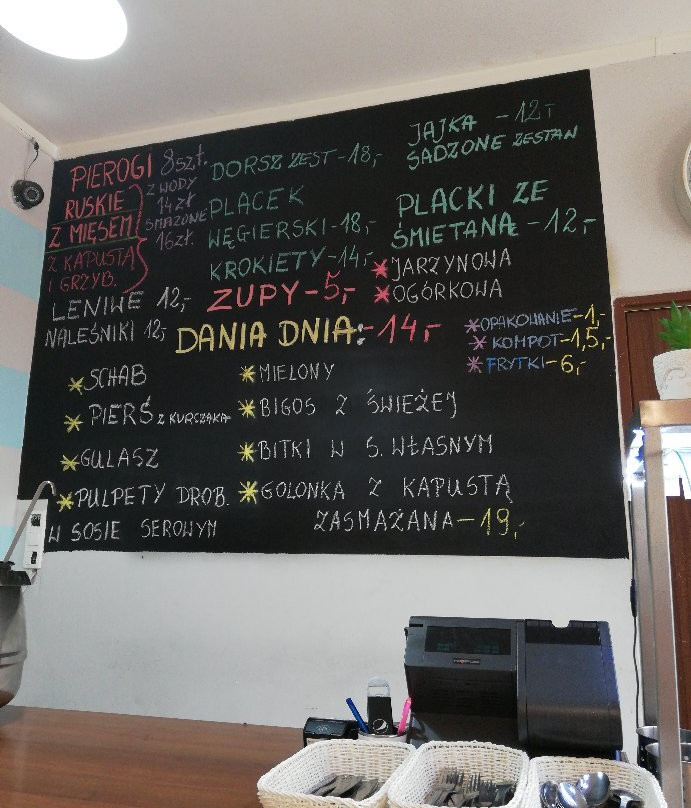 PIEROGI 8szt.
RUSKIE
Z MIĘSEM
Z KAPUSTĄ
I GRZYB.
Z WODY
14zł
SMAŻONE
16zł.
LENIWE 12,-
NALEŚNIKI 12,-
DORSZ ZEST-18,-
PLACEK
WĘGIERSKI-18,-
KROKIETY-14,-
JAJKA -12,-
SADZONE ZESTAW
PLACKI ZE
ŚMIETANĄ -12,-
ZUPY-5,-
*JARZYNOWA
*OGÓRKOWA
DANIA DNIA:-14,-
*OPAKOWANIE-1,-
*KOMPOT-1,5,-
*FRYTKI-6,-
*SCHAB
*PIERŚ Z KURCZAKA
*GULASZ
*PULPETY DROB.
W SOSIE SEROWYM
*MIELONY
*BIGOS Z ŚWIEŻEJ
*BITKI W S. WŁASNYM
*GOLONKA Z KAPUSTĄ
ZASMAŻANA-19,-